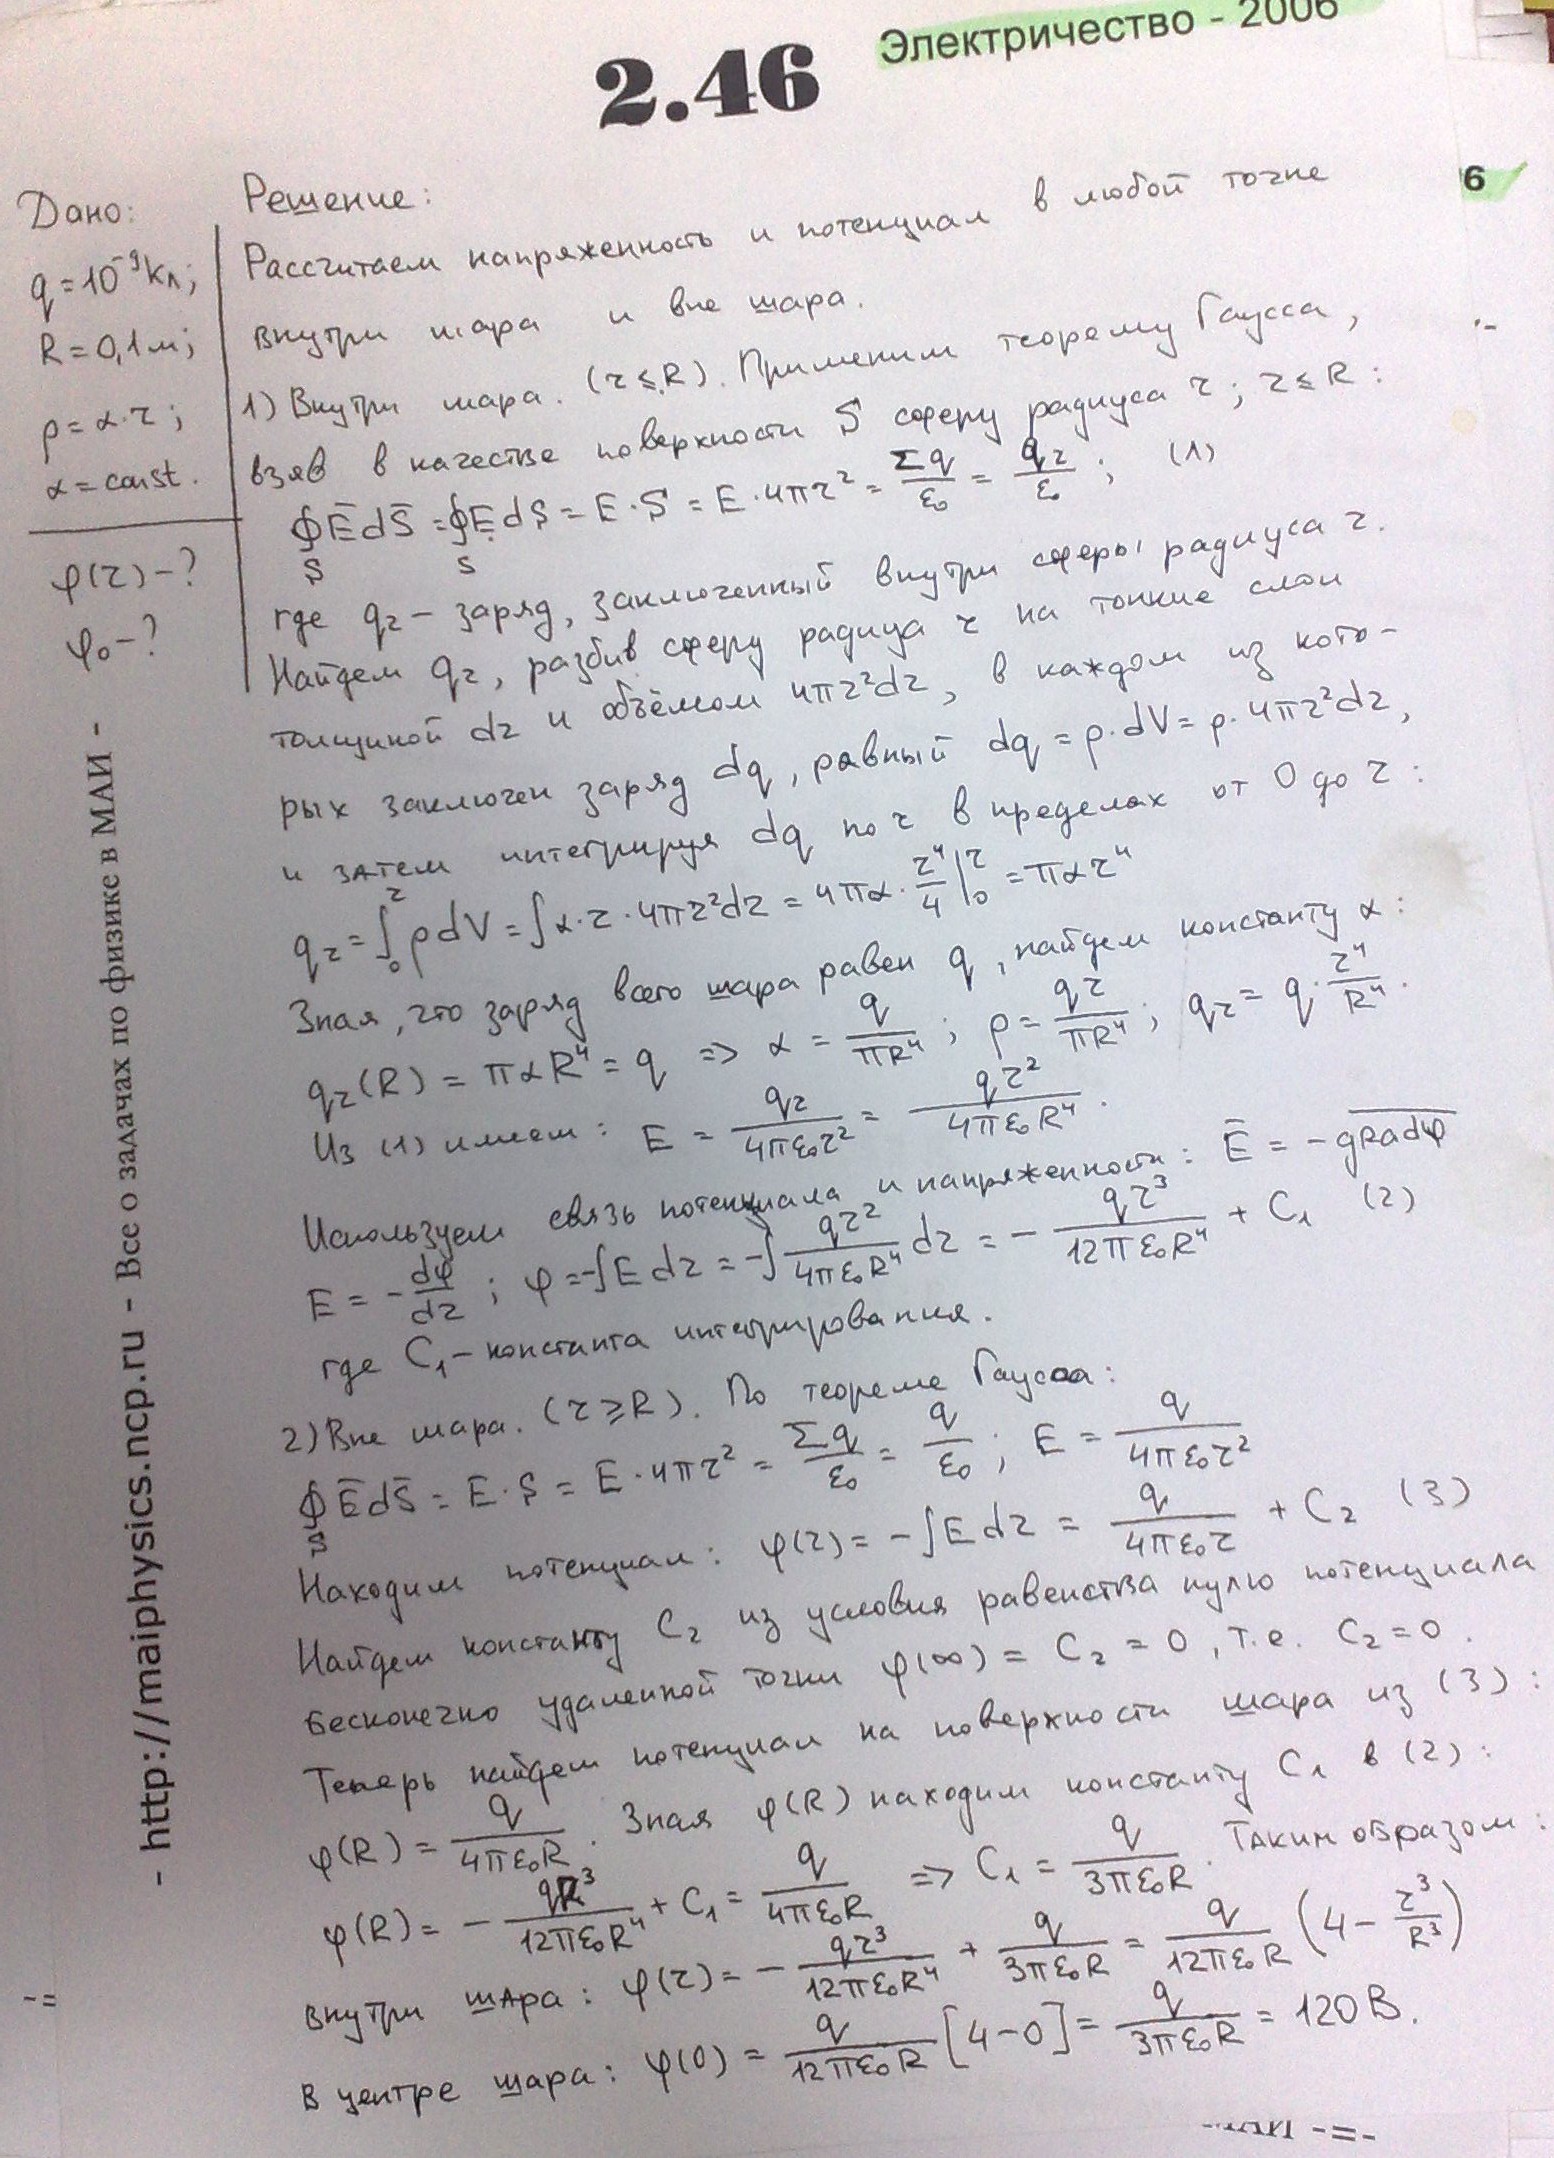 Электричество - 2006
2.46
6
Дано:
q = 10⁻⁹ Кл;
R = 0,1 м;
ρ = α·r;
α = const.
φ(r) - ?
φ₀ - ?
Решение:
Рассчитаем напряженность и потенциал в любой точке
внутри шара и вне шара.
1) Внутри шара. (r ≤ R). Применим теорему Гаусса,
взяв в качестве поверхности S сферу радиуса r; r ≤ R:
∮_S E̅dS̅ = ∮_S EdS = E·S = E·4πr² = Σq/ε₀ = qr/ε₀; (1)
где qr – заряд, заключенный внутри сферы радиуса r.
Найдем qr, разбив сферу радиуа r на тонкие слои
толщиной dr и объёмом 4πr²dr, в каждом из кото-
рых заключен заряд dq, равный dq = ρ·dV = ρ·4πr²dr,
и затем интегрируя dq по r в пределах от 0 до r:
qr = ∫₀^r ρdV = ∫α·r·4πr²dr = 4πα·r⁴/4 |₀^r = παr⁴
Зная, что заряд всего шара равен q, найдем константу α:
qr(R) = παR⁴ = q => α = q/πR⁴; ρ = qr/πR⁴; qr = q·r⁴/R⁴.
Из (1) имеем: E = qr/4πε₀r² = qr²/4πε₀R⁴.
Используем связь потенциала и напряженности: E̅ = -gradφ
E = -dφ/dr; φ = -∫Edr = -∫qr²/4πε₀R⁴ dr = -qr³/12πε₀R⁴ + C₁ (2)
где C₁ – константа интегрирования.
2) Вне шара. (r ≥ R). По теореме Гаусса:
∮_S E̅dS̅ = E·S = E·4πr² = Σq/ε₀ = q/ε₀; E = q/4πε₀r²
Находим потенциал: φ(r) = -∫Edr = q/4πε₀r + C₂ (3)
Найдем константу C₂ из условия равенства нулю потенциала
бесконечно удаленной точки φ(∞) = C₂ = 0, т.е. C₂ = 0.
Теперь найдем потенциал на поверхности шара из (3):
φ(R) = q/4πε₀R. Зная φ(R) находим константу C₁ в (2):
φ(R) = -qR³/12πε₀R⁴ + C₁ = q/4πε₀R => C₁ = q/3πε₀R. Таким образом:
внутри шара: φ(r) = -qr³/12πε₀R⁴ + q/3πε₀R = q/12πε₀R (4 - r³/R³)
В центре шара: φ(0) = q/12πε₀R [4-0] = q/3πε₀R = 120 В.
- http://maiphysics.ncp.ru - Все о задачах по физике в МАИ -
-=
-=-